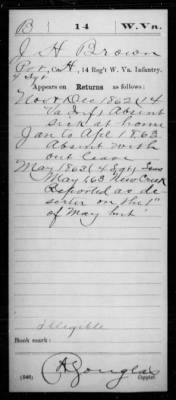 B | 14 | W. Va.
J. H. Brown
Pvt, Co. H, 14 Reg't W. Va. Infantry.
Appears on Returns as follows:
Nov & Dec 1862 (14
Va Inf) Absent
sick at home
Jan to Apl 1863
Absent with
out leave
May 1863
May 1, 63 New Creek
Reported as de
serter on the 1"
of May but
illegible
Book mark:
(546)
A Douglas
Copyist.